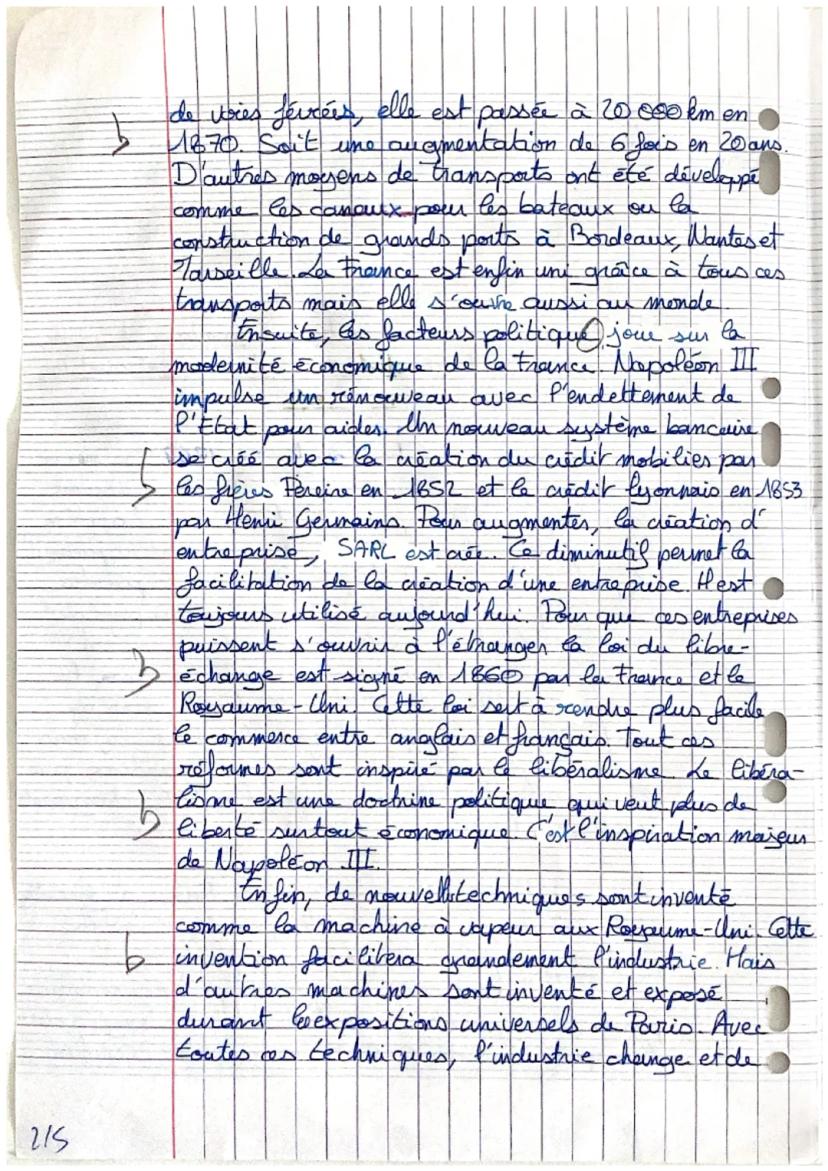 de voies férrées, elle est passée à 20 000 km en
1870. Soit une augmentation de 6 fois en 20 ans.
D'autres moyens de transports ont été développé
comme les canaux pour les bateaux ou la
construction de grands ports à Bordeaux, Nantes et
Marseille. La France est enfin uni grâce à tous ces
transports mais elle s'ouvre aussi au monde.
Ensuite, les facteurs politique joue sur la
modernité économique de la France. Napoléon III
impulse un renouveau avec l'endettement de
l'Etat pour aider. Un nouveau système bancaire
se créé avec la création du crédit mobilier par
les frères Pereire en 1852 et le crédit lyonnais en 1853
par Henri Germains. Pour augmenter, la création d'
entreprise, SARL est crée. Ce diminutif permet la
facilitation de la création d'une entreprise. Il est
toujours utilisé aujourd'hui. Pour que ces entreprises
puissent s'ouvrir à l'étranger la loi du libre-
échange est signé en 1860 par la France et le
Royaume-Uni. Cette loi sert à rendre plus facile
le commerce entre anglais et français. Tout ces
réformes sont inspiré par le libéralisme. Le libéra-
lisme est une doctrine politique qui veut plus de
liberté surtout économique. C'est l'inspiration majeur
de Napoléon III.
Enfin, de nouvelles techniques sont inventé
comme la machine à vapeur aux Royaume-Uni. Cette
invention facilitera grandement l'industrie. Mais
d'autres machines sont inventé et exposé
durant les expositions universels de Paris. Avec
toutes ces techniques, l'industrie change et de
2/5